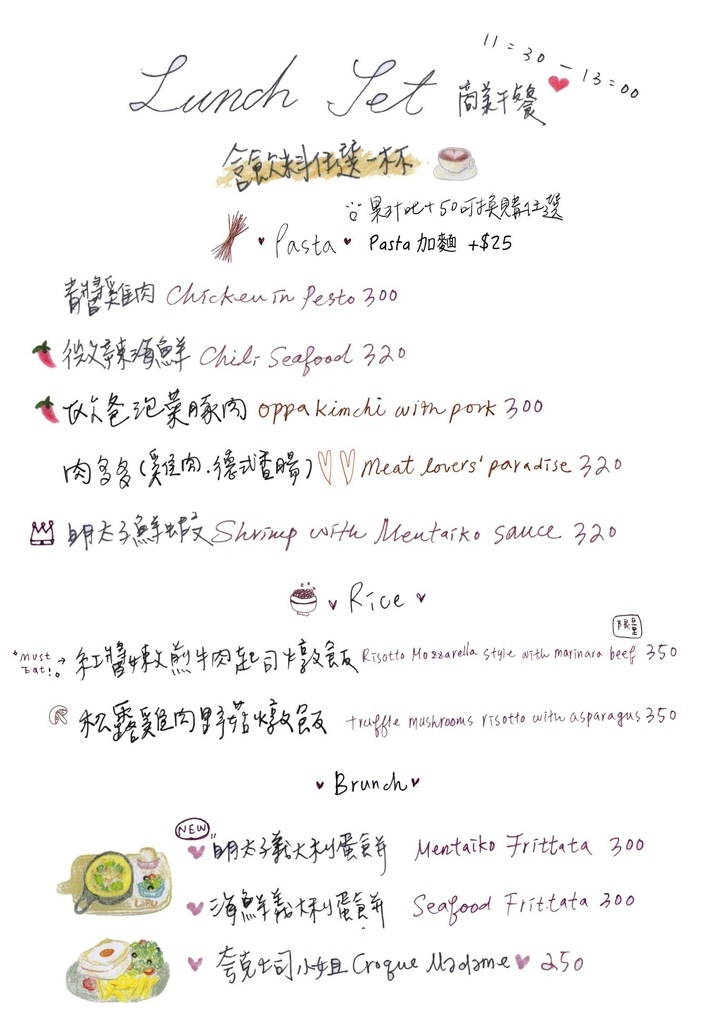 11:30-13:00
Lunch Set 商業午餐
含飲料任選一杯
果汁吧+50可換購任選
Pasta Pasta加麵 +$25
青醬雞肉 Chicken in Pesto 300
微辣海鮮 Chili Seafood 320
歐爸泡菜豚肉 oppa kimchi with pork 300
肉多多(雞肉.德式香腸) meat lovers' paradise 320
明太子鮮蝦 Shrimp with Mentaiko sauce 320
Rice
限量
"Must Eat!" → 紅醬嫩煎牛肉起司燉飯 Risotto Mozzarella style with marinara beef 350
松露雞肉野菇燉飯 truffle mushrooms risotto with asparagus 350
Brunch
NEW
明太子義大利蛋餅 Mentaiko Frittata 300
海鮮義大利蛋餅 Seafood Frittata 300
夸克吐司小姐 Croque Madame 250